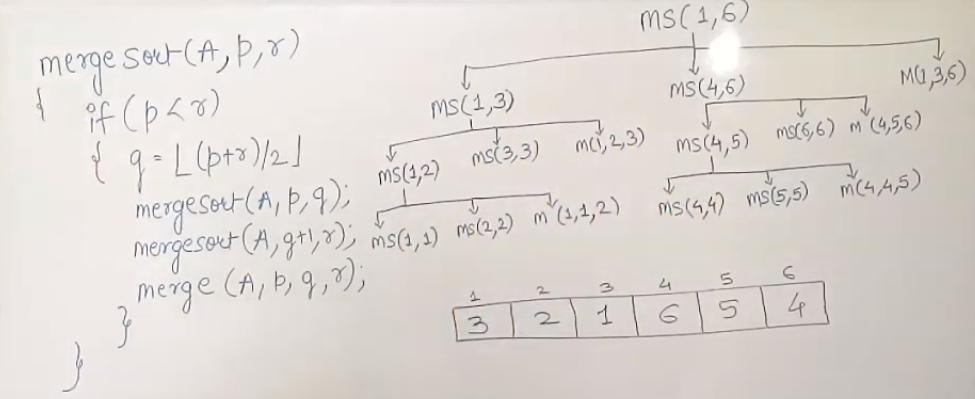 mergesort(A,p,r)
{
if(p<r)
{ q = ⌊(p+r)/2⌋
mergesort(A,p,q);
mergesort(A,q+1,r);
merge(A,p,q,r);
}
}
MS(1,6)
MS(1,3) MS(4,6) M(1,3,6)
MS(1,2) MS(3,3) m(1,2,3) MS(4,5) MS(6,6) m(4,5,6)
MS(1,1) MS(2,2) m(1,1,2) MS(4,4) MS(5,5) m(4,4,5)
1 2 3 4 5 6
3 2 1 6 5 4